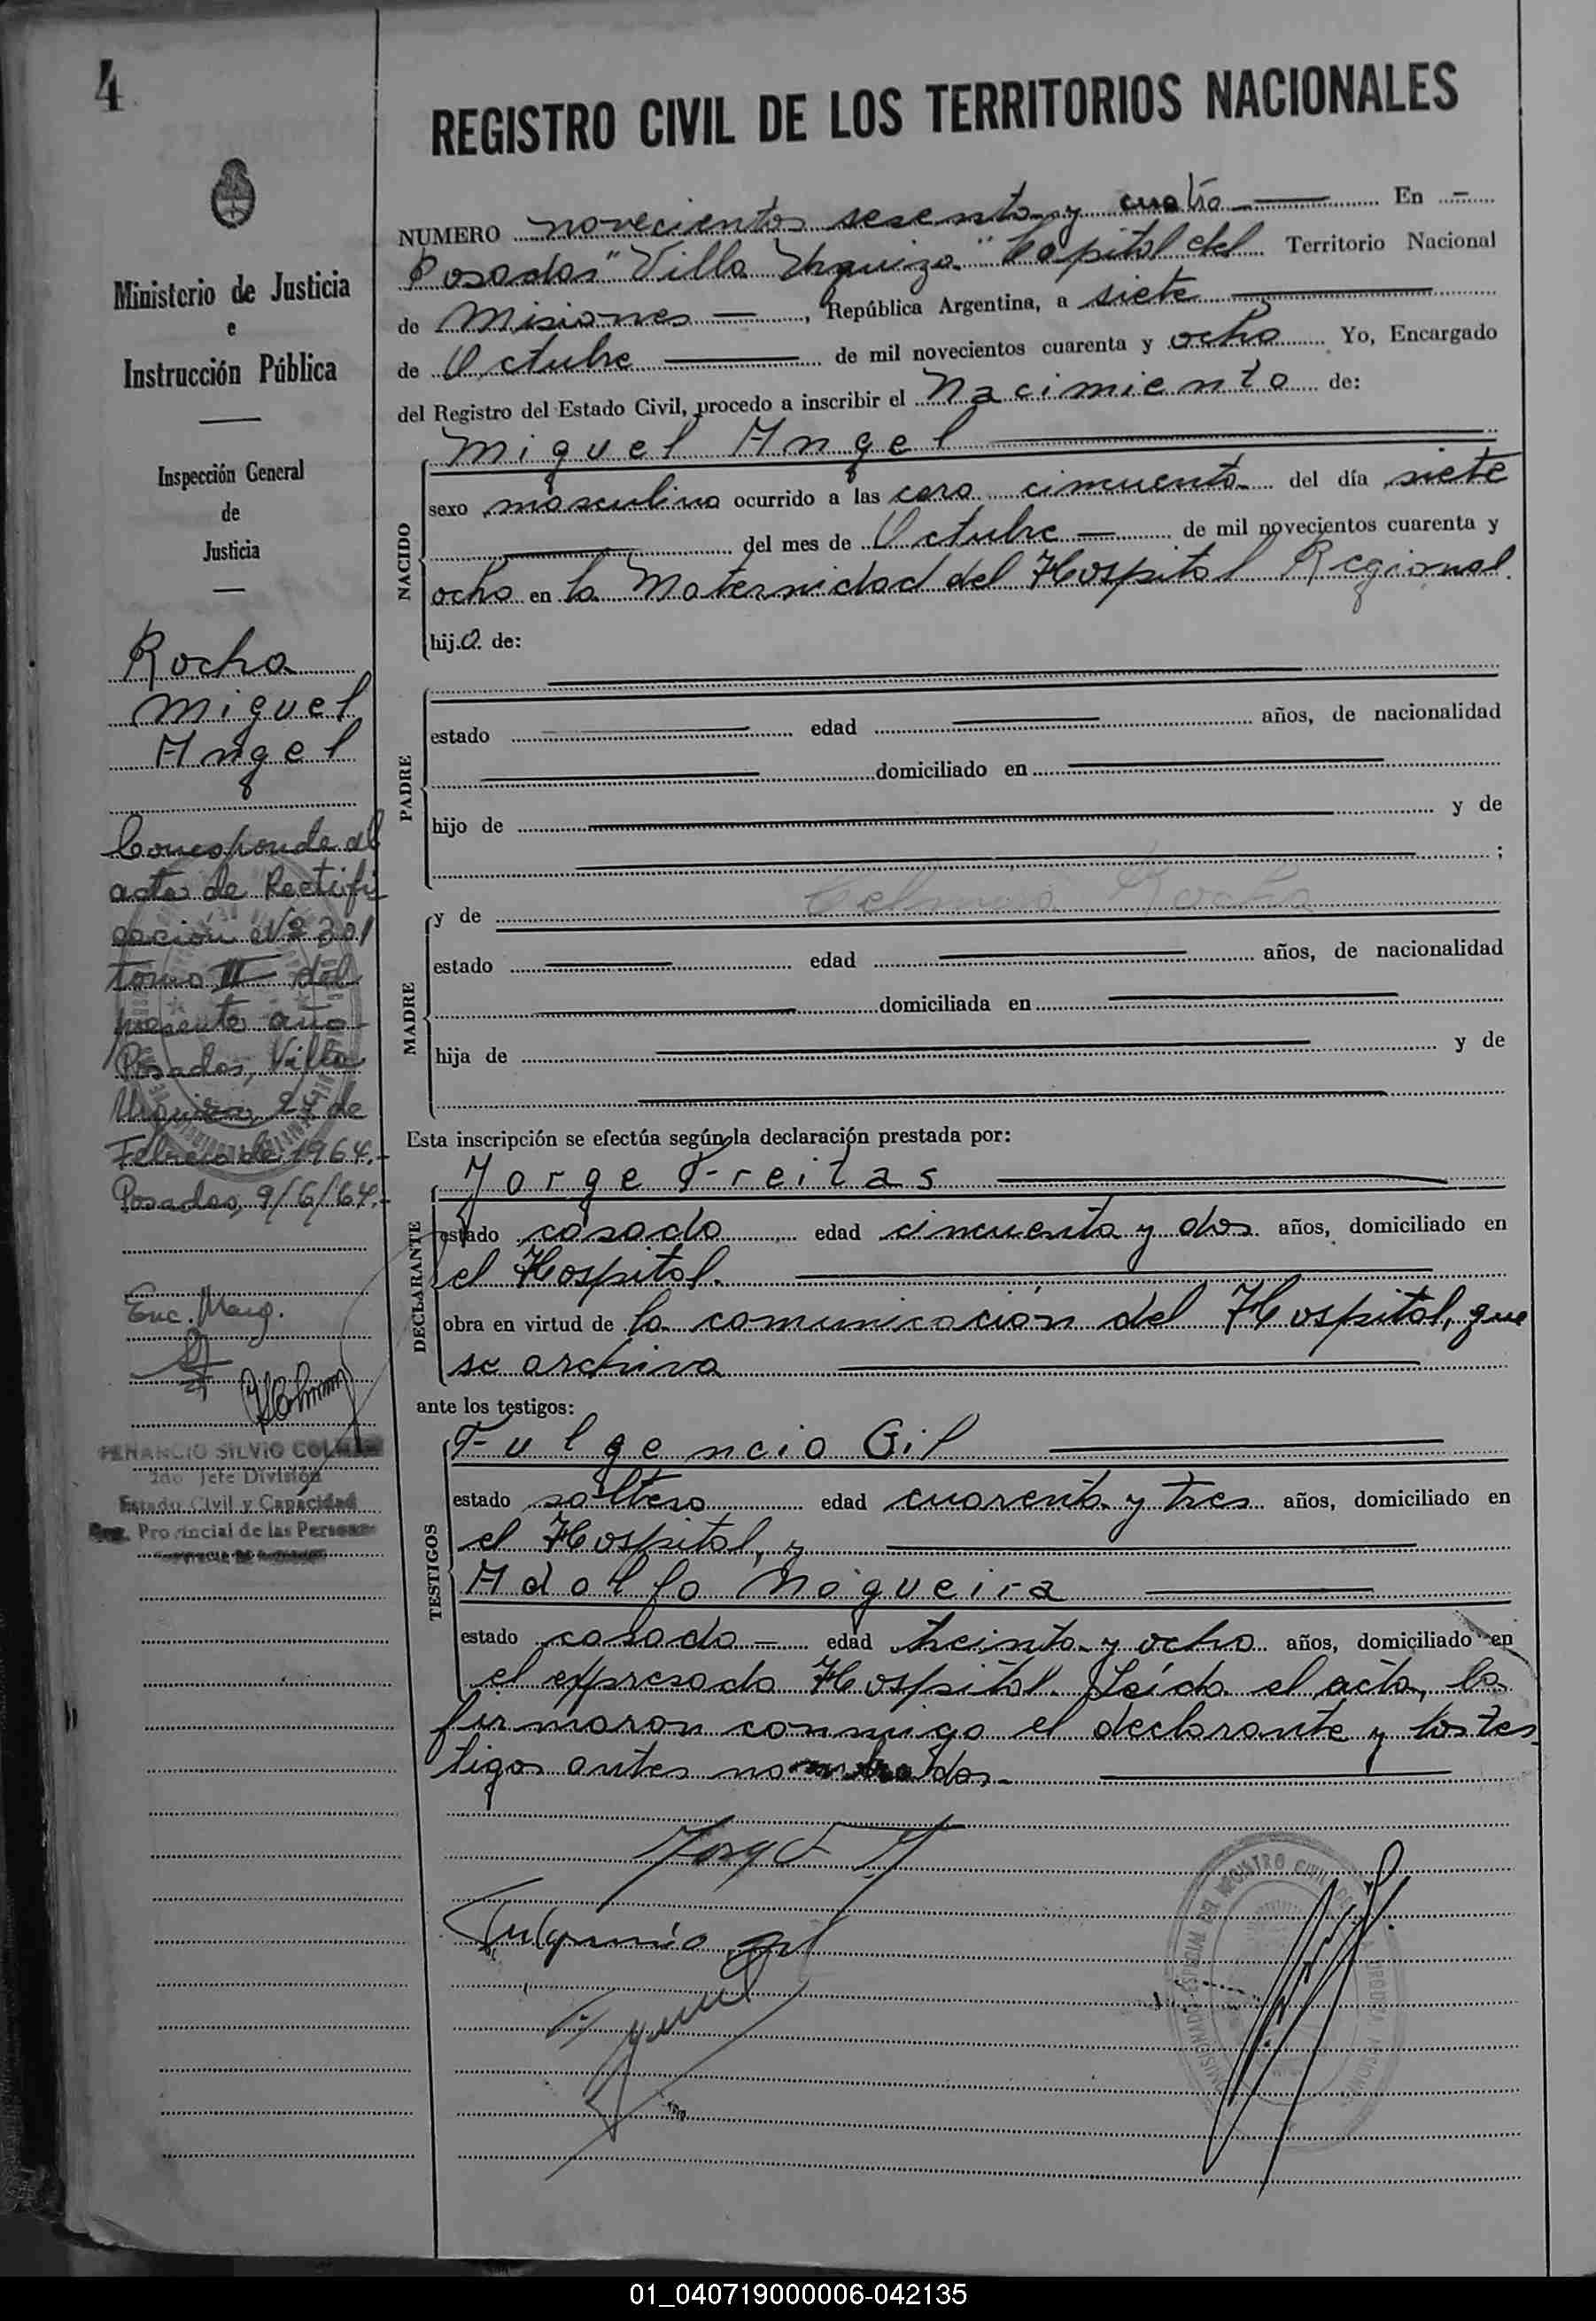 4
REGISTRO CIVIL DE LOS TERRITORIOS NACIONALES
Ministerio de Justicia
e
Instrucción Pública
Inspección General
de
Justicia
Rocha
Miguel
Angel
Corresponde al
acta de Rectifi
cación Nº 301
tomo III del
presente año
Posadas, Villa
Urquiza, 24 de
Febrero de 1964.-
Posadas, 9/6/64.-
Enc. Marg.
2do Jefe División
Estado Civil y Capacidad
Reg. Provincial de las Personas
NUMERO novecientos sesenta y cuatro En
Posadas "Villa Urquiza" Capital del Territorio Nacional
de Misiones, República Argentina, a siete
de Octubre de mil novecientos cuarenta y ocho Yo, Encargado
del Registro del Estado Civil, procedo a inscribir el Nacimiento de:
NACIDO
Miguel Angel
sexo masculino ocurrido a las cero cincuenta del día siete
del mes de Octubre de mil novecientos cuarenta y
ocho en la Maternidad del Hospital Regional.
hijo de:
PADRE
estado edad años, de nacionalidad
domiciliado en
hijo de y de
;
MADRE
y de Celmira Rocha
estado edad años, de nacionalidad
domiciliada en
hija de y de
Esta inscripción se efectúa según la declaración prestada por:
DECLARANTE
Jorge Freitas
estado casado edad cincuenta y dos años, domiciliado en
el Hospital.
obra en virtud de la comunicación del Hospital, que
se archiva
ante los testigos:
TESTIGOS
Fulgencio Gil
estado soltero edad cuarenta y tres años, domiciliado en
el Hospital, y
Adolfo Nogueira
estado casado edad treinta y ocho años, domiciliado en
el expresado Hospital. Leída el acta, la
firmaron conmigo el declarante y los tes-
tigos antes nombrados.
Fulgencio Gil
01_040719000006-042135